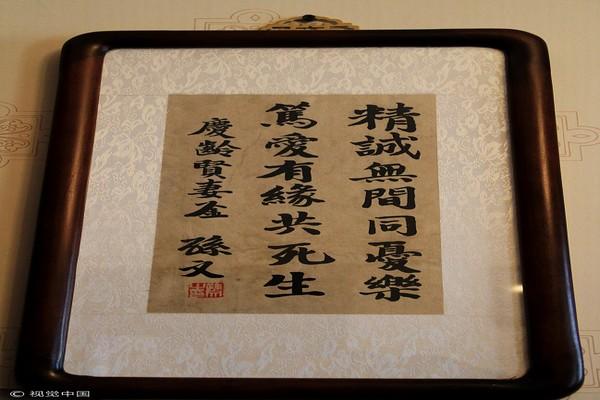 精誠無間同憂樂
篤愛有緣共死生
慶齡賢妻 孫文
© 视觉中国